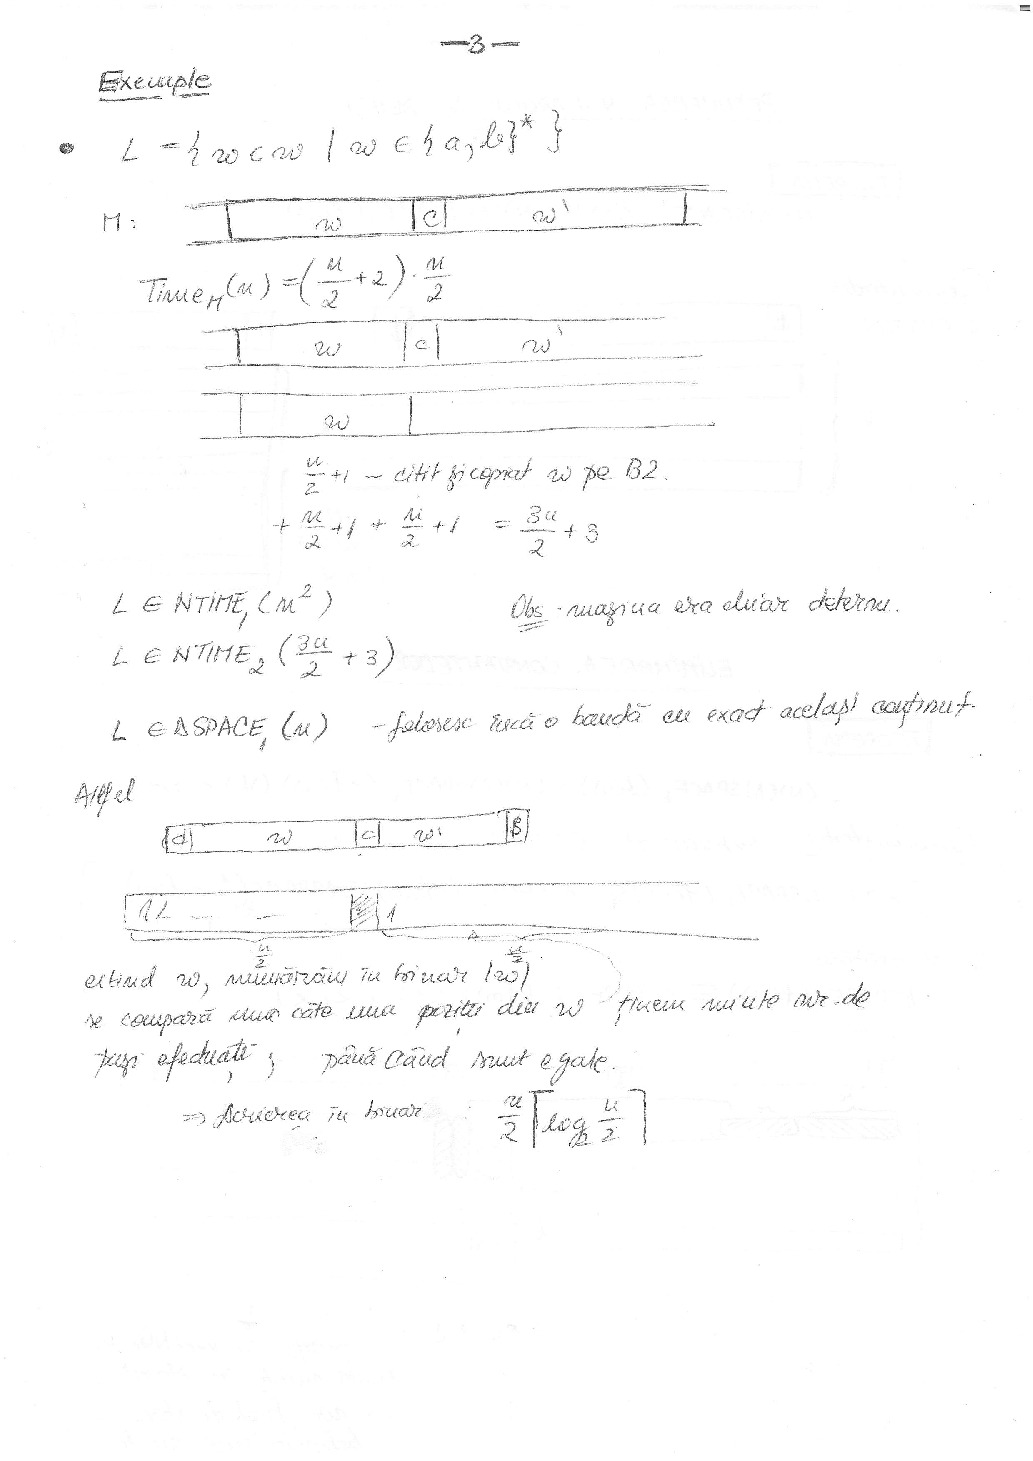 —3—
Exemple
• L = { w c w | w ∈ { a, b }* }
M: w c w'
Time_M (n) = ( n/2 + 2 ) · n/2
w c w'
w
n/2 + 1 – citit și copiat w pe B2.
+ n/2 + 1 + n/2 + 1 = 3n/2 + 3
L ∈ NTIME_1 ( n² ) Obs · mașina era chiar determ.
L ∈ NTIME_2 ( 3n/2 + 3 )
L ∈ DSPACE_1 (n) - folosesc încă o bandă cu exact același conținut.
Altfel
w c w' $
1 2 — — 1
n/2 n/2
citind w, numărăm în binar |w|
se compară una câte una poziții din w ținem minte nr. de
pași efectuați ; până când sunt egale.
⇒ scrierea în binar : n/2 ⌈ log_2 n/2 ⌉